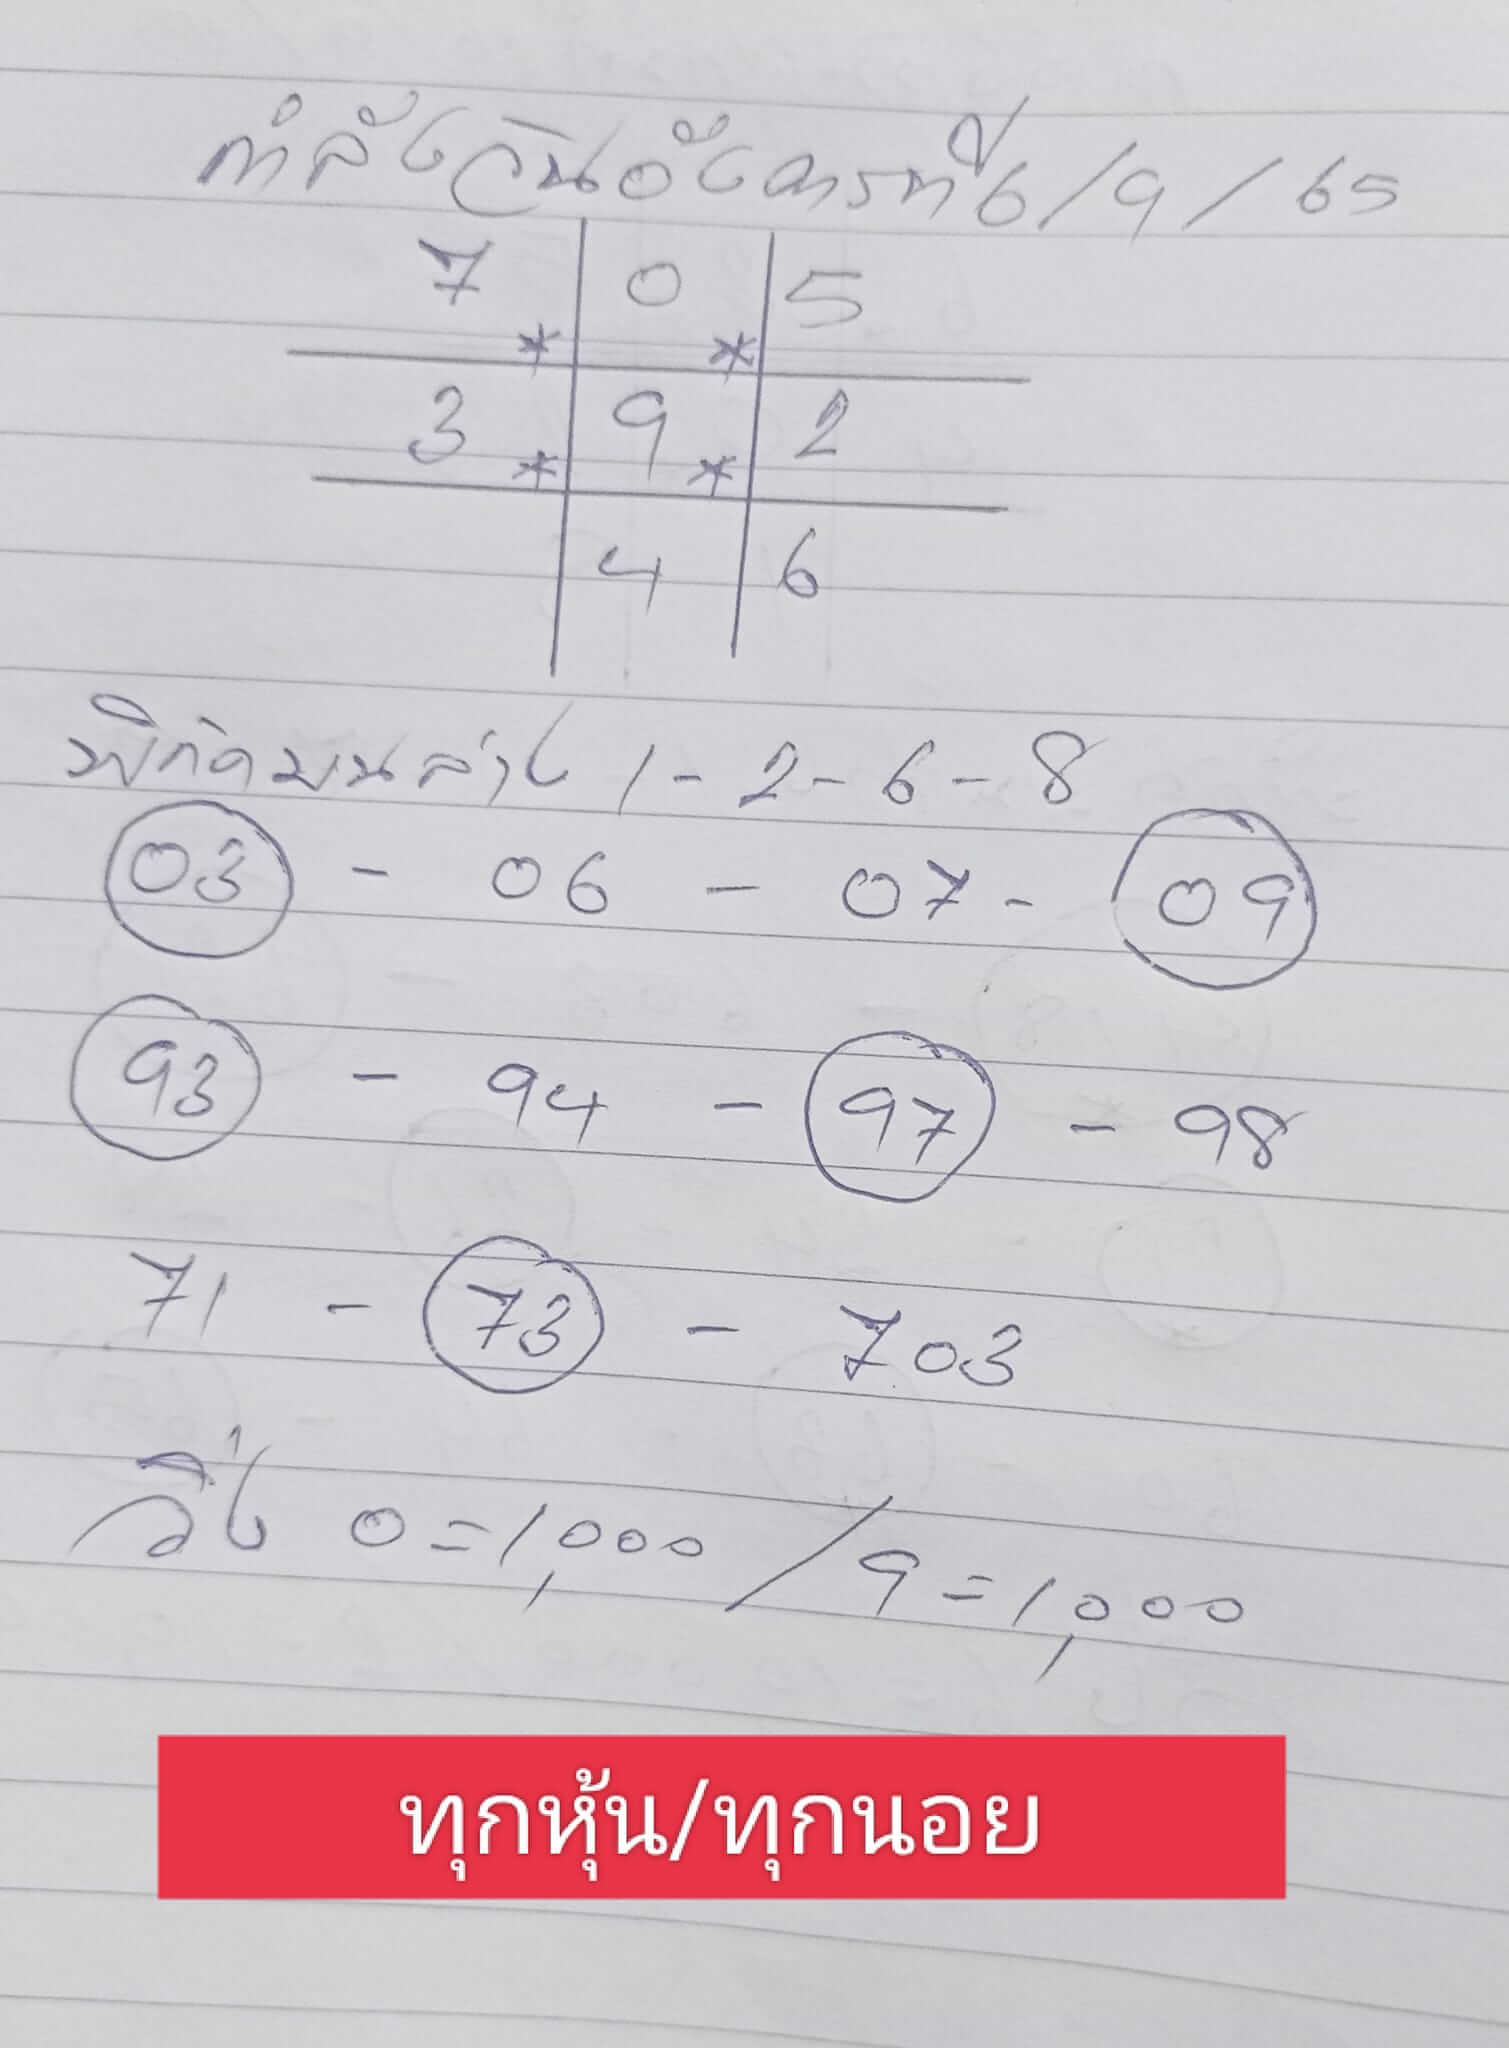 กำลังวันอังคารที่ 6/9/65
7 0 5
* *
3 9 2
* *
4 6
พิกัดบนล่าง 1-2-6-8
03 - 06 - 07 - 09
93 - 94 - 97 - 98
71 - 73 - 703
วิ่ง 0=1,000 / 9=1,000
ทุกหุ้น/ทุกนอย